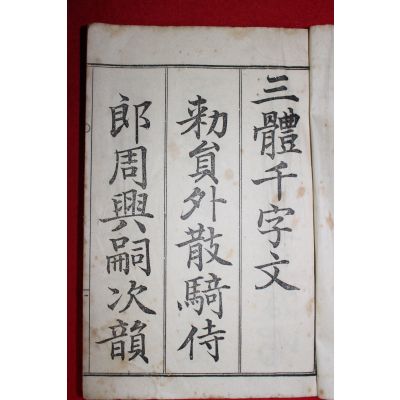 三體千字文
勑貟外散騎侍
郎周興嗣次韻